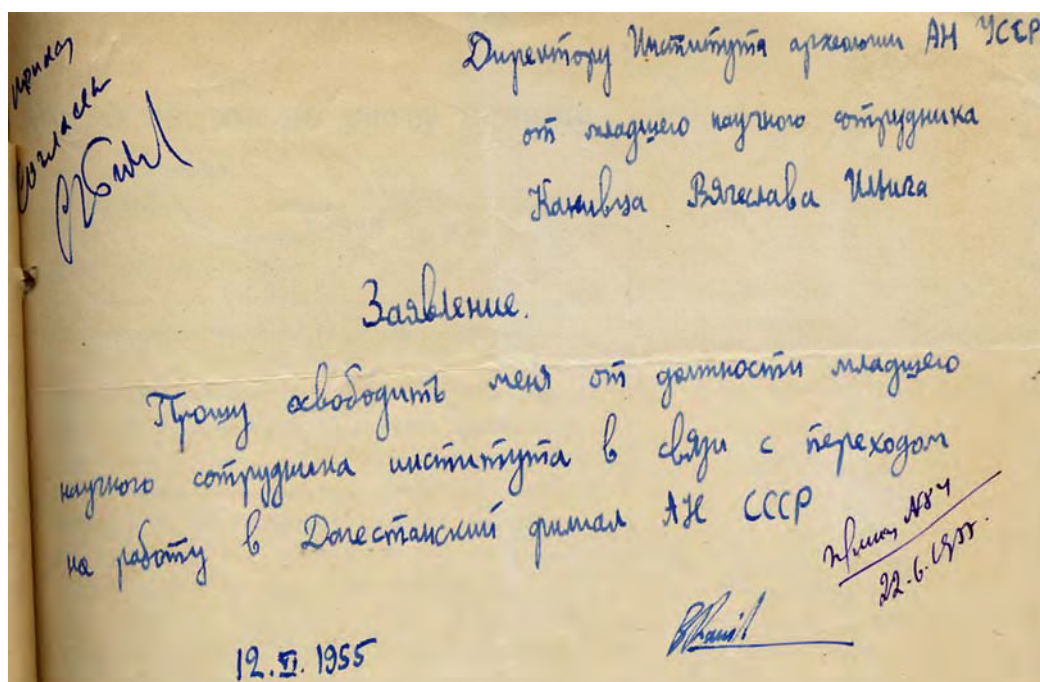 приказ
Согласен
Директору Института археологии АН УССР
от младшего научного сотрудника
Канивца Вячеслава Ильича
Заявление.
Прошу освободить меня от должности младшего
научного сотрудника института в связи с переходом
на работу в Дагестанский филиал АН СССР
Приказ №84
22.6.1955.
12.VI.1955